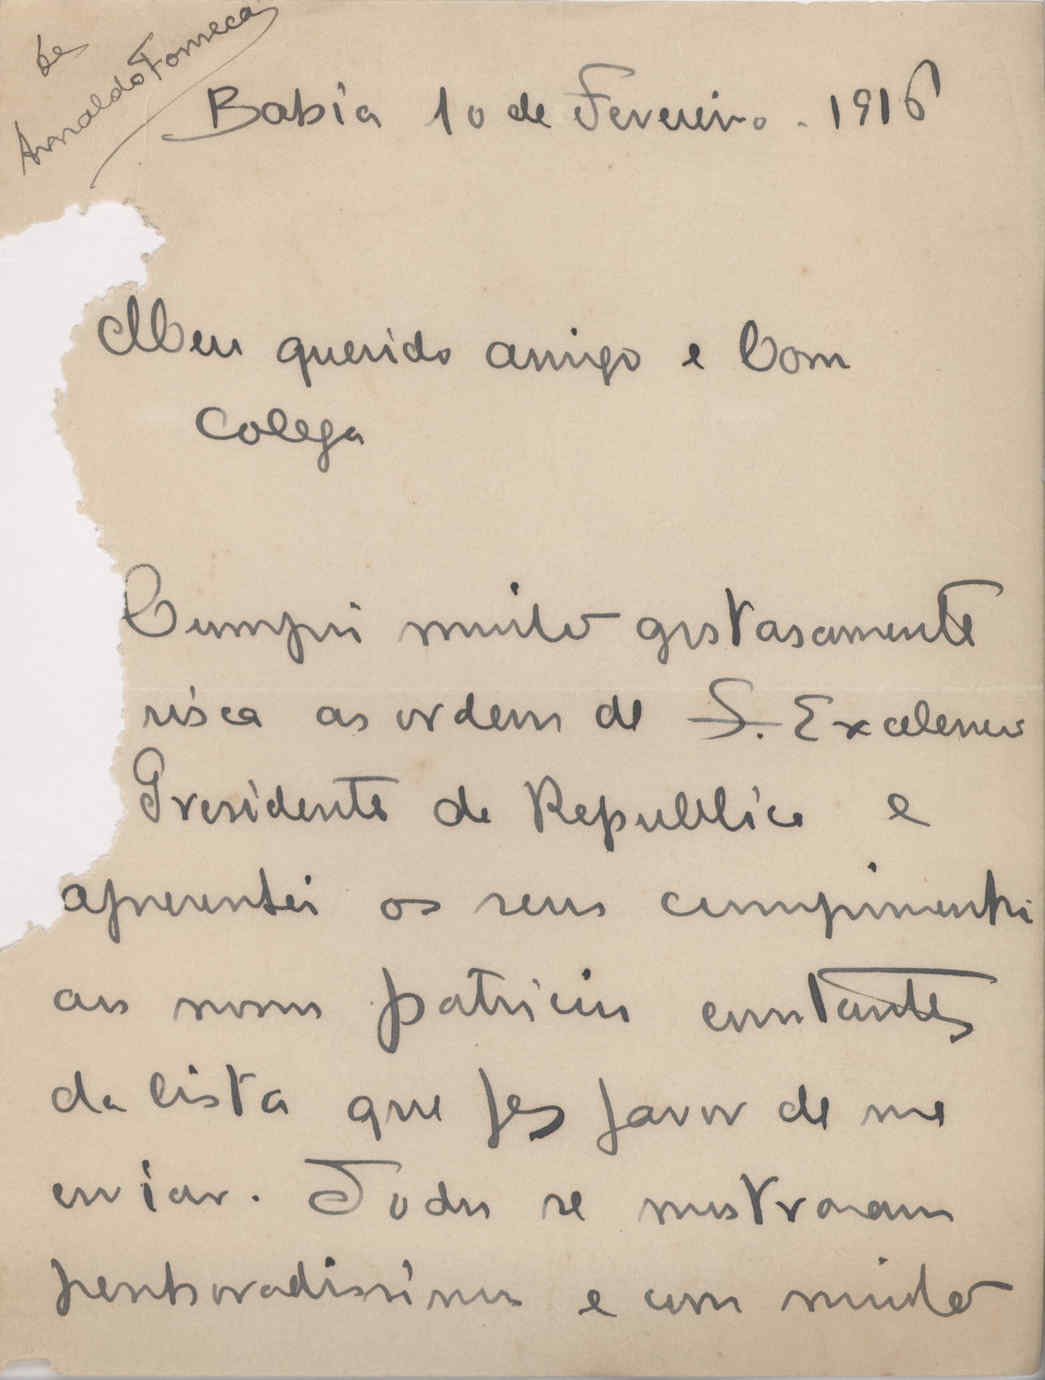 de
Arnaldo Fonseca
Bahia 10 de Fevereiro . 1916
Meu querido amigo e bom
colega
Cumpri muito gostosamente
risca as ordem de S. Excelencia
Presidente da Republica e
apresentei os seus cumprimentos
aos nossos patricios constantes
da lista que fez favor de me
enviar. Todos se mostraram
penhoradissimos e com muito